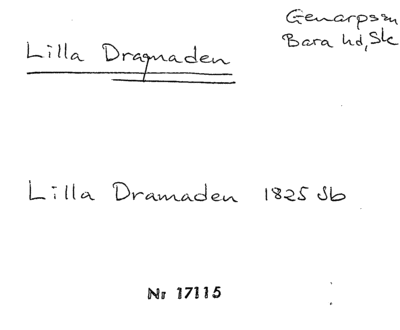 Genarps sn
Bara hd, Sk
Lilla Dragmaden
Lilla Dramaden 1825 Jb
Nr 17115